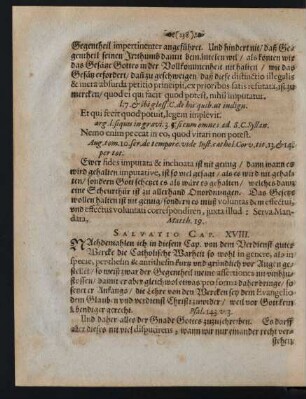 (138)
Gegentheil impertinenter angeführt. Und hindert nit / daß Ge-
gentheil seinen Irrthumb damit bemäntelen wil / als könten wir
das Gesätz Gottes in der Vollkommenheit nit halten / wie das
Gesätz erfordert / dañ zu geschweigen / daß diese distinctio illegalis
& mera absurda petitio principii, ex prioribus satis refutata, ist zu
mercken / quod ei qui facit quod potest, nihil imputatur.
l. 7. & ibi gloss. C. de his quib. ut indign.
Et qui fecit quod potuit, legem implevit.
Nemo enim peccat in eo, quod vitari non potest.
per tot.
Ewer fides imputata & inchoata ist nit genug / dann wann es
wird gehalten imputative, ist so viel gesagt / als es wird nit gehal-
ten / sondern Gott schetzet es als wäre es gehalten / welches dann
eine Scheurthür ist zu allerhand Unordnungen. Das Gesetz
wollen halten ist nit genug / sondern es muß voluntas dem effectui,
und effectus voluntati correspondiren, juxta illud: Serva Man-
data,
Matth. 19.
SALVATIO CAP. XVIII.
NAchdemahlen ich in diesem Cap. von dem Verdienst guter
Wercke die Catholische Warheit so wohl in genere, als in
specie, per thesin & antithesin kurtz und gründlich vor Augen ge-
stellet / so weiß zwar der Gegentheil meine assertiones nit umbzu-
stossen / damit er aber gleichwol etwas pro forma daher bringe / so
setzet er Anfangs / die Lehre von den Wercken sey dem Evangelio /
dem Glaub. n und verdienst Christi zuwider / weil vor Gott kein
lebendiger gerecht.
Psal. 143. v. 3.
Und daher alles der Gnade Gottes zuzuschreiben. Es darff
aber dieses nit viel disputirens / wann wir nur einander recht ver-